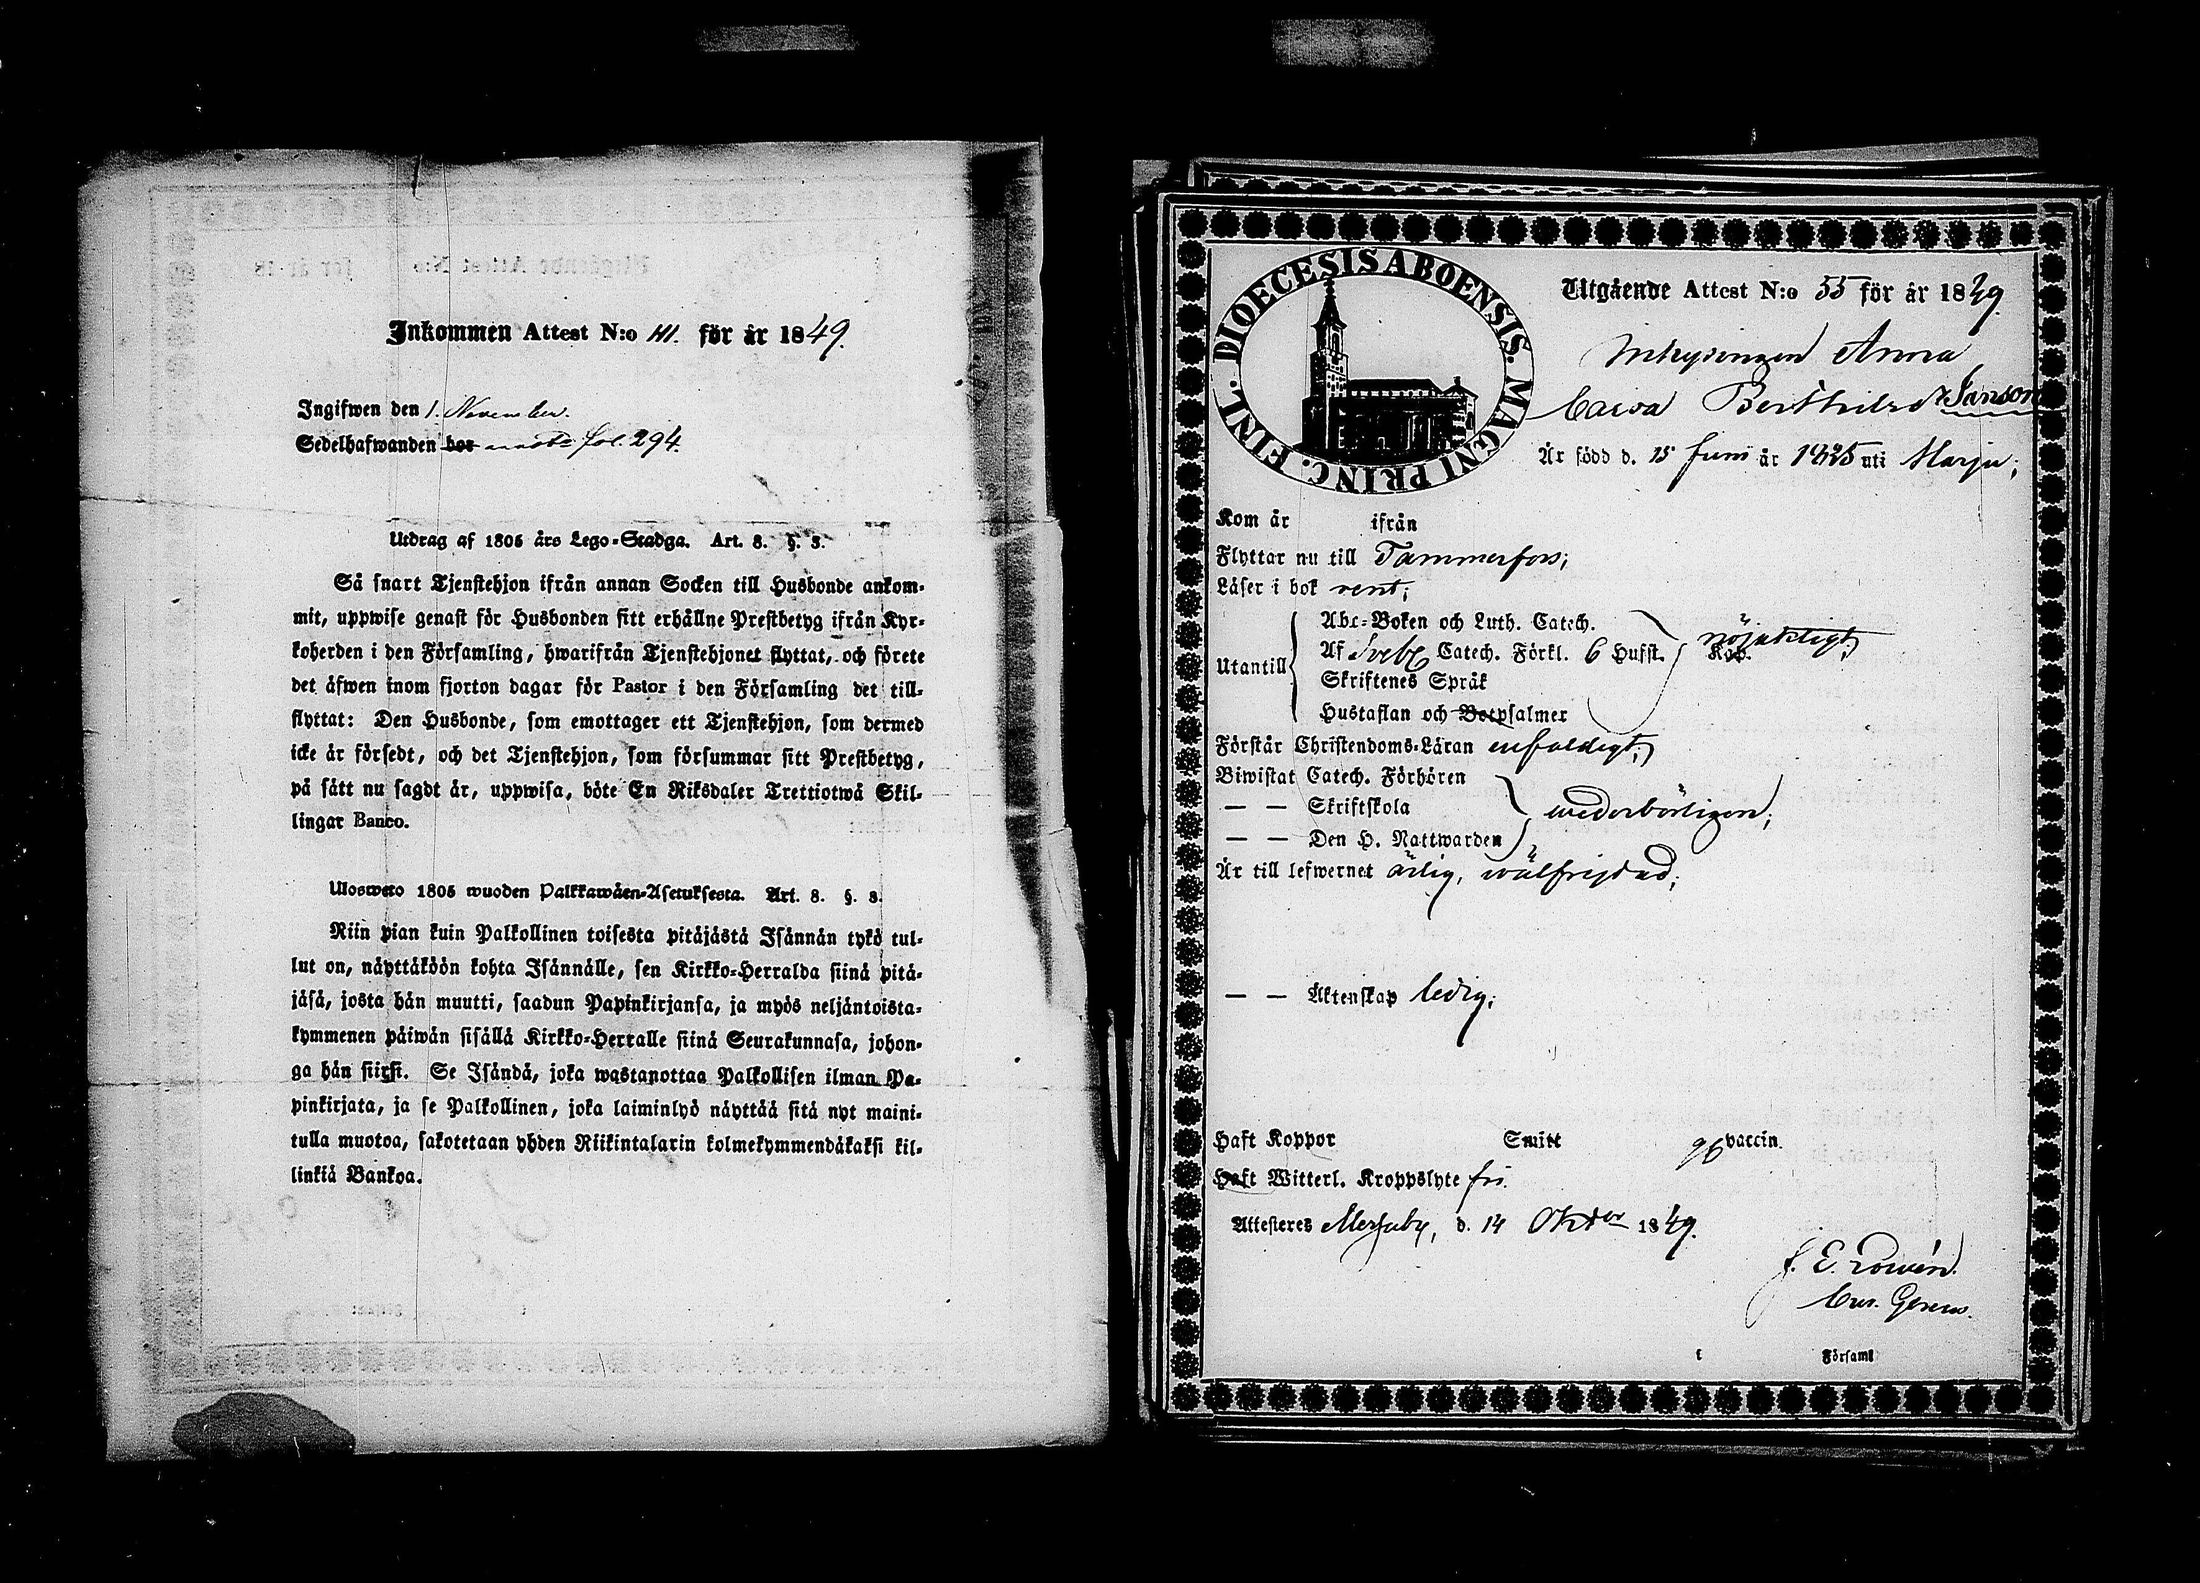 Inkommen Attest N:o 111. för år 1849.
Ingifwen den 1. November.
Sedelhafwanden hos fol. 294.
Utdrag af 1805 års Lego-Stadga. Art. 8. §. 3.
Så snart Tjenstehjon ifrån annan Socken till Husbonde ankom-
mit, uppwise genast för Husbonden sitt erhållne Prestbetyg ifrån Kyr-
koherden i den Församling, hwarifrån Tjenstehjonet flyttat, och förete
det äfwen inom fjorton dagar för Pastor i den Församling det till-
flyttat: Den Husbonde, som emottager ett Tjenstehjon, som dermed
icke är försedt, och det Tjenstehjon, som försummar sitt Prestbetyg,
på sätt nu sagdt är, uppwisa, böte En Riksdaler Trettiotwå Skil-
lingar Banco.
Ulosweto 1805 wuoden Palkkawäen-Asetuksesta. Art. 8. §. 3.
Niin pian kuin Palkollinen toisesta pitäjästä Isännän tykö tul-
lut on, näyttäköön kohta Isännälle, sen Kirkko-Herralda siinä pitä-
jäsä, josta hän muutti, saadun Papinkirjansa, ja myös neljäntoista-
kymmenen päiwän sisällä Kirkko-Herralle siinä Seurakunnasa, johon-
ga hän siirsi. Se Isändä, joka wastanottaa Palkollisen ilman Pa-
pinkirjata, ja se Palkollinen, joka laiminlyö näyttää sitä nyt maini-
tulla muotoa, sakotetaan yhden Riikintalarin kolmekymmendäkaksi kil-
linkiä Bankoa.
DIOECESIS ABOENSIS. MAGNI PRINC. FINL.
Utgående Attest N:o 55 för år 1849.
Inhysingen Anna
Caisa Berthilsd:r Janson
Är född d. 15 Juni år 1825 uti Harju;
Kom år ifrån
Flyttar nu till Tammerfors;
Läser i bok rent;
Utantill
Abc-Boken och Luth. Catech.
Af Sveb. Catech. Förkl. 6 Hufst. Kap.
nöjaktligt;
Skriftenes Språk
Hustaflan och Botpsalmer
Förstår Christendoms-Läran enfaldigt;
Biwistat Catech. Förhören
— — Skriftskola wederbörligen;
— — Den H. Nattwarden
Är till lefwernet ärlig, wälfrejdad;
— — Äktenskap ledig;
Haft Koppor Smitt vaccin.
Haft Witterl. Kroppslyte fri.
Attesteres Messuby, d. 14 Oktober 1849.
i Församl